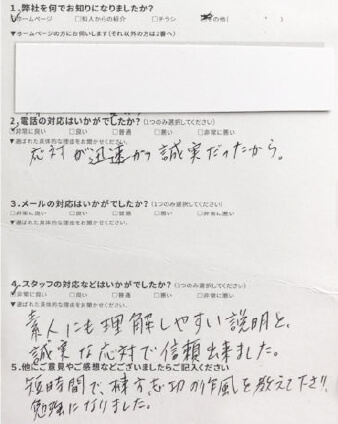 1.弊社を何でお知りになりましたか?
☑ホームページ □知人からの紹介 □チラシ の他( )
▼ホームページの方にお伺いします(それ以外の方は2番へ)
2.電話の対応はいかがでしたか?(1つのみ選択してください)
☑非常に良い □良い □普通 □悪い □非常に悪い
▼選ばれた具体的な理由をお聞かせください。
応対が迅速かつ誠実だったから。
3.メールの対応はいかがでしたか?(1つのみ選択してください)
□非常に良い □良い □普通 □悪い □非常に悪い
▼選ばれた具体的な理由をお聞かせください。
4.スタッフの対応などはいかがでしたか?(1つのみ選択してください)
☑非常に良い □良い □普通 □悪い □非常に悪い
▼選ばれた具体的な理由をお聞かせください。
素人にも理解しやすい説明と、
誠実な応対で信頼出来ました。
5.他にご意見やご感想などございましたらご記入ください
短時間で、棟方志功の作風を教えて下さり、
勉強になりました。